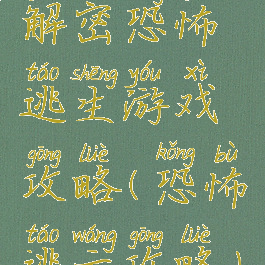 解密恐怖
táo shēng yóu xì
逃生游戏
gōng lüè kǒng bù
攻略(恐怖
táo wáng gōng lüè
逃亡攻略)